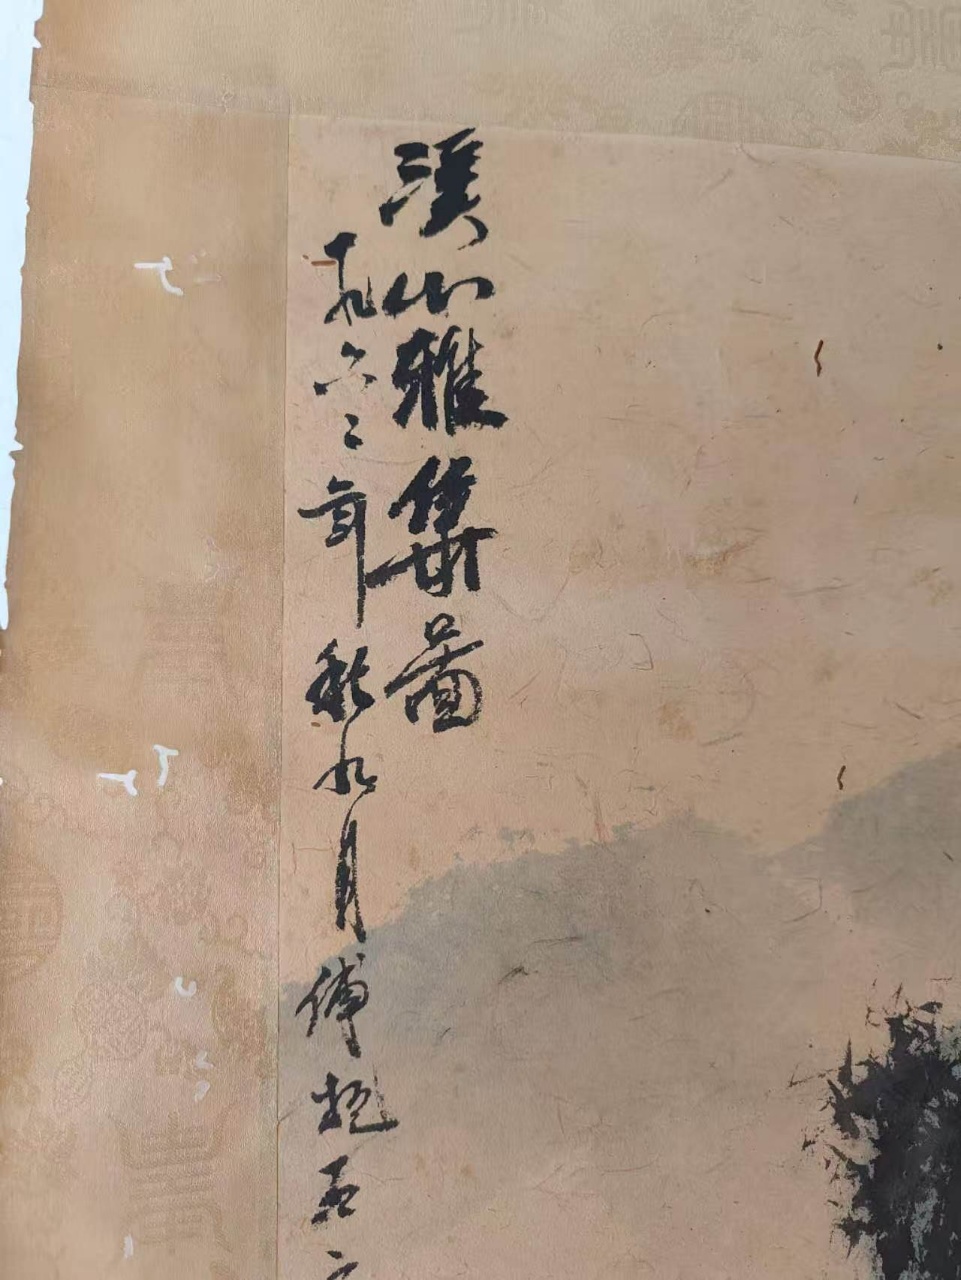 溪山雅集图
一九六二年秋九月傅抱石